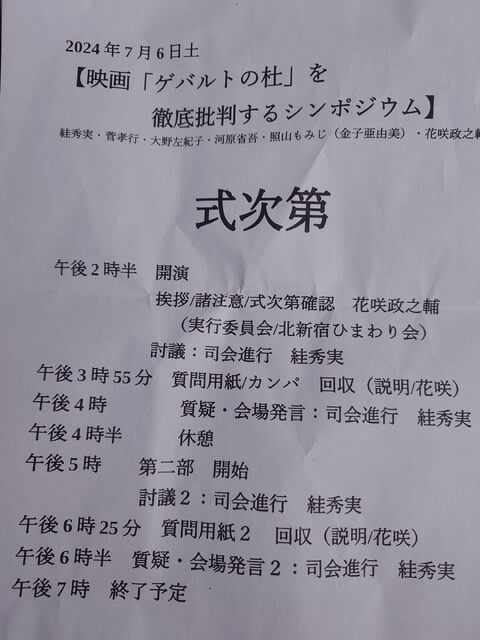 2024年7月6日土
【映画「ゲバルトの杜」を
徹底批判するシンポジウム】
絓秀実・菅孝行・大野左紀子・河原省吾・照山もみじ(金子亜由美)・花咲政之輔
式次第
午後2時半 開演
挨拶/諸注意/式次第確認 花咲政之輔
(実行委員会/北新宿ひまわり会)
討議:司会進行 絓秀実
午後3時55分 質問用紙/カンパ 回収(説明/花咲)
午後4時 質疑・会場発言:司会進行 絓秀実
午後4時半 休憩
午後5時 第二部 開始
討議2:司会進行 絓秀実
午後6時25分 質問用紙2 回収(説明/花咲)
午後6時半 質疑・会場発言2:司会進行 絓秀実
午後7時 終了予定